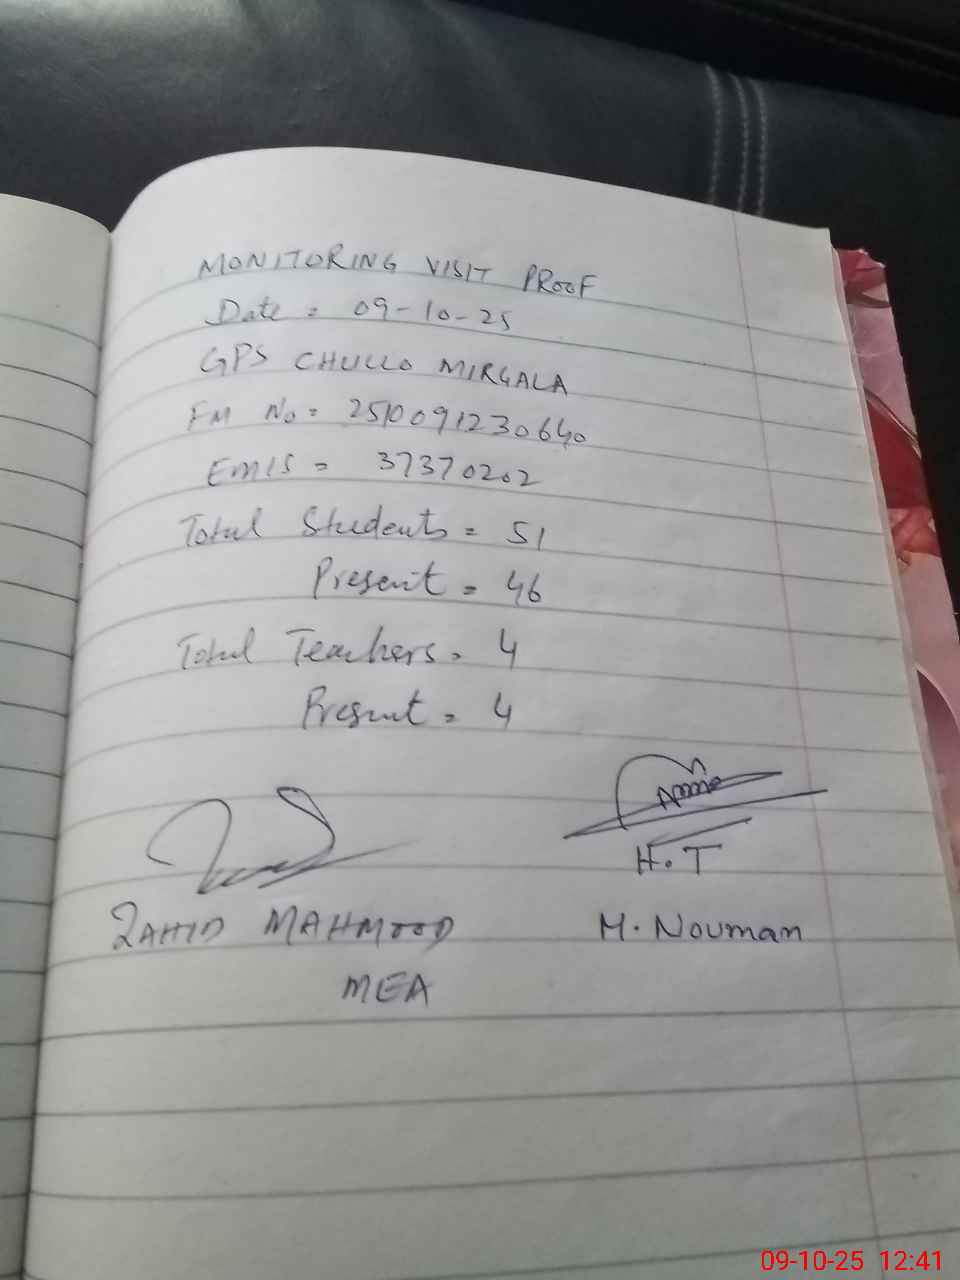 MONITORING VISIT PROOF
Date = 09-10-25
GPS CHULLO MIRGALA
FM No = 2510091230640
EMIS = 37370202
Total Students = 51
Present = 46
Total Teachers = 4
Present = 4
H.T
ZAHID MAHMOOD
M. Nouman
MEA
09-10-25 12:41